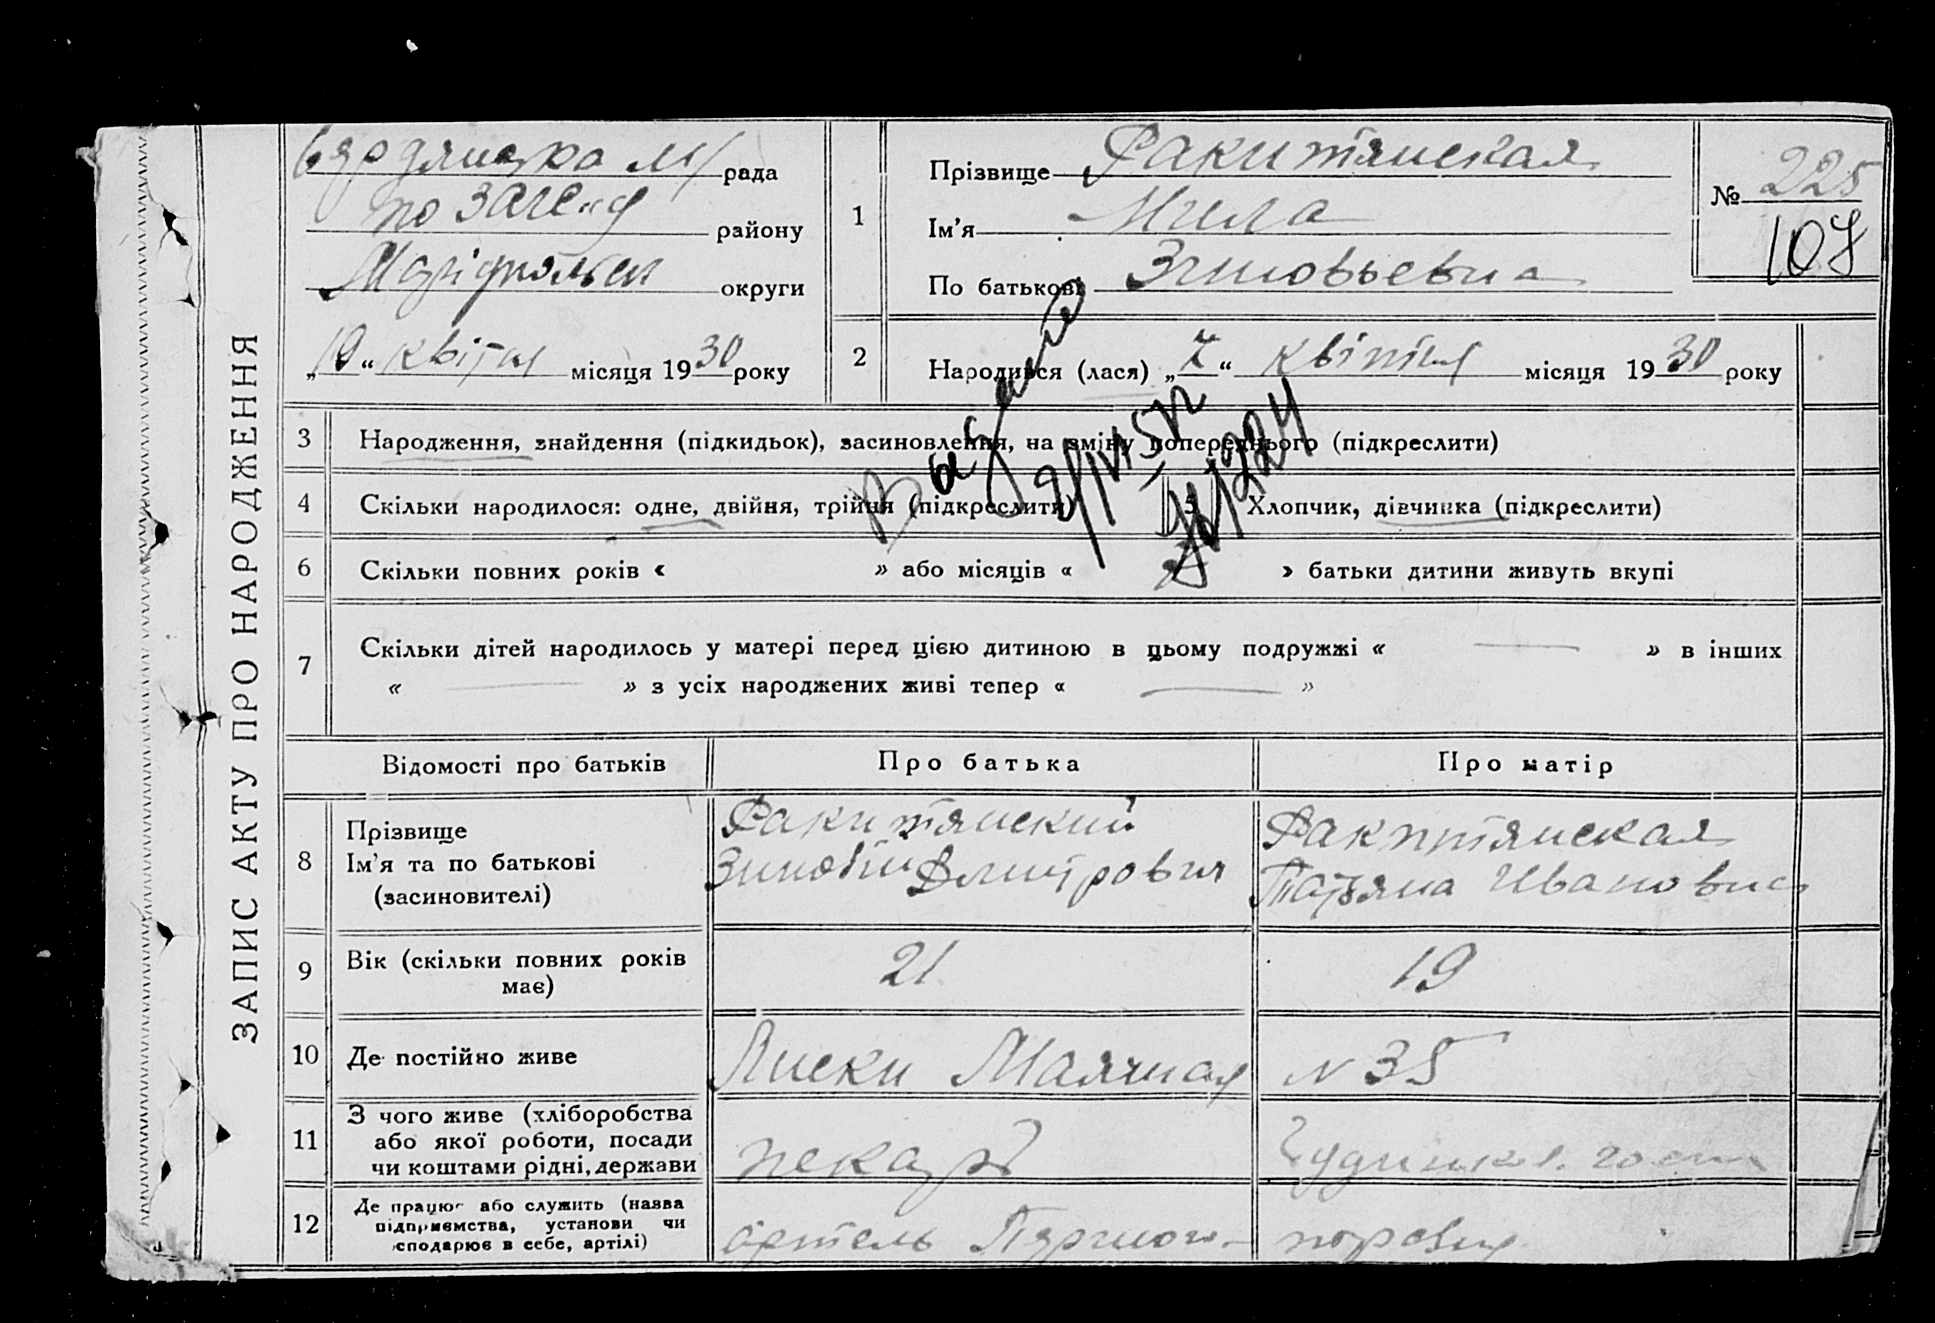 ЗАПИС АКТУ ПРО НАРОДЖЕННЯ
Бердянська м/рада
району
Маріупольск округи
„19“ квітня місяця 1930 року
1
Прізвище Ракитянская
Ім’я
По батькові Зиновьевна
№ 225
107
2
Народився (лася) „7“ квітня місяця 1930 року
Видано
3
Народження, знайдення (підкидьок), засиновлення, на зміну попереднього (підкреслити)
4
Скільки народилося: одне, двійня, трійня (підкреслити)
5
Хлопчик, дівчинка (підкреслити)
6
Скільки повних років « » або місяців « » батьки дитини живуть вкупі
7
Скільки дітей народилось у матері перед цією дитиною в цьому подружжі « — » в інших
« — » з усіх народжених живі тепер « — »
Відомості про батьків
Про батька
Про матір
8
Прізвище
Ім’я та по батькові
(засиновителі)
Ракитянский
Зиновій Дмитрович
Ракитянская
Татьяна Ивановна
9
Вік (скільки повних років
має)
21
19
10
Де постійно живе
Лиски Маячная
№ 35
11
З чого живе (хліборобства
або якої роботи, посади
чи коштами рідні, держави
пекарь
12
Де працює або служить (назва
підприємства, установи чи
сподарює в себе, артілі)
артель